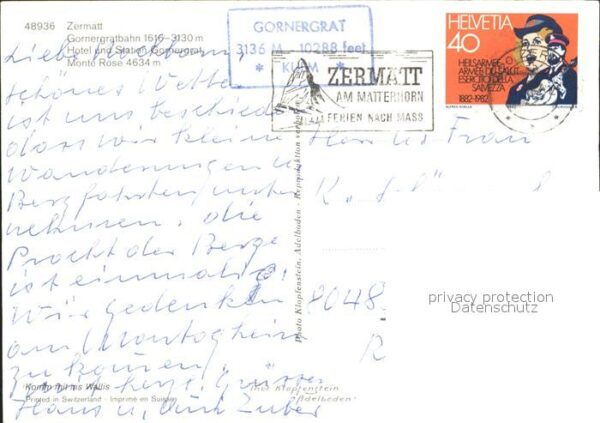 48936 Zermatt
Gornergratbahn 1616 - 3130 m
Hotel und Station Gornergrat
Monte Rose 4634 m
GORNERGRAT
3136 M 10288 feet
* KULM *
ZERMATT
AM MATTERHORN
FERIEN NACH MASS
HELVETIA
40
HEILSARMEE
ARMÉE DU SALUT
ESERCITO DELLA
SALVEZZA
1882-1982
Liebe Nachbarn,
schönes Wetter
ist uns beschieden
dass wir kleine
Wanderungen u.
Bergfahrten unter
nehmen. die
Pracht der Berge
ist einmalig.
Wir gedenken
am Montag heim
zu kommen.
herzl. Grüsse
Hans u. Zuber
Herr u. Frau
8048
Photo Klopfenstein, Adelboden - Reproduktion verboten
privacy protection
Datenschutz
Komm mit ins Wallis
Printed in Switzerland - Imprimé en Suisse
Klopfenstein
Adelboden